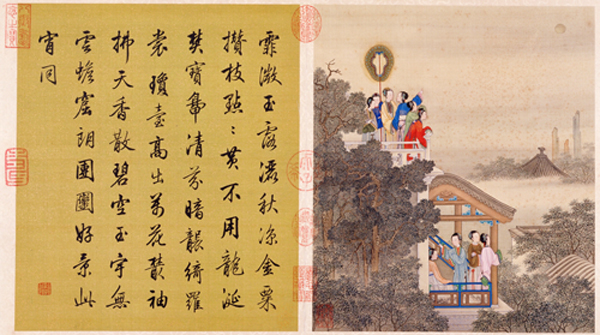 霏微玉露秋涼金粟
攢枝點〻黃不用龍涎
焚寶鼎清芬暗襲綺羅
裳瓊臺高出萬花叢袖
拂天香散碧空玉宇無
雲蟾窟朗團團好景此
宵同